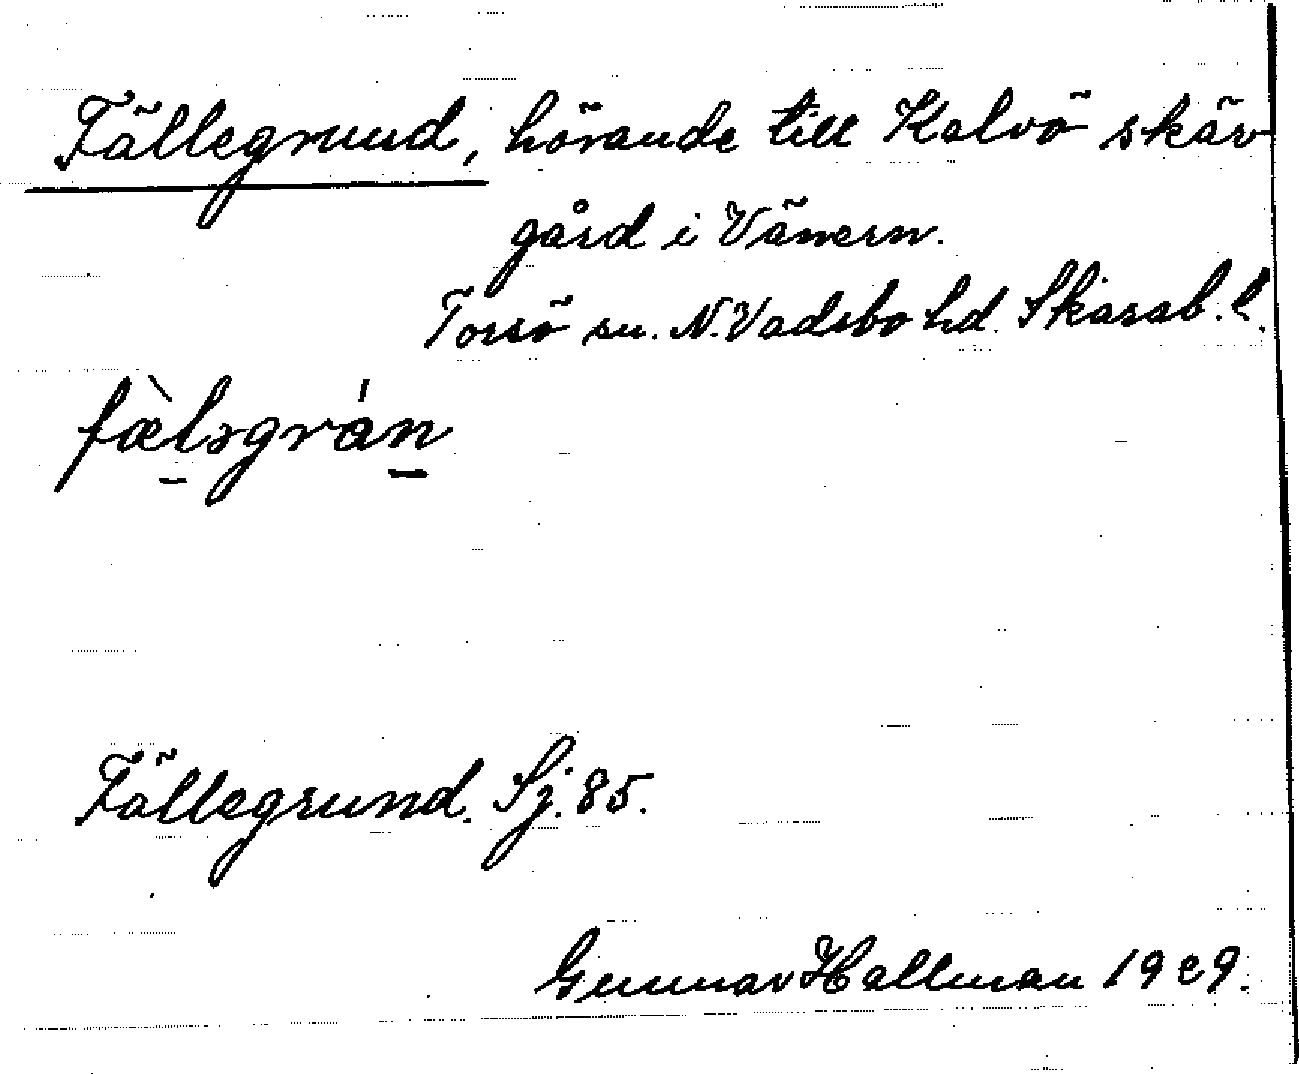 Fällegrund, hörande till Kalvö skär
gård i Vänern.
Torsö sn. N. Vadsbo hd. Skarab. l.
fæ̀lǝgrán
Fällegrund. Sj. 85.
Gunnar Hallman 1929.